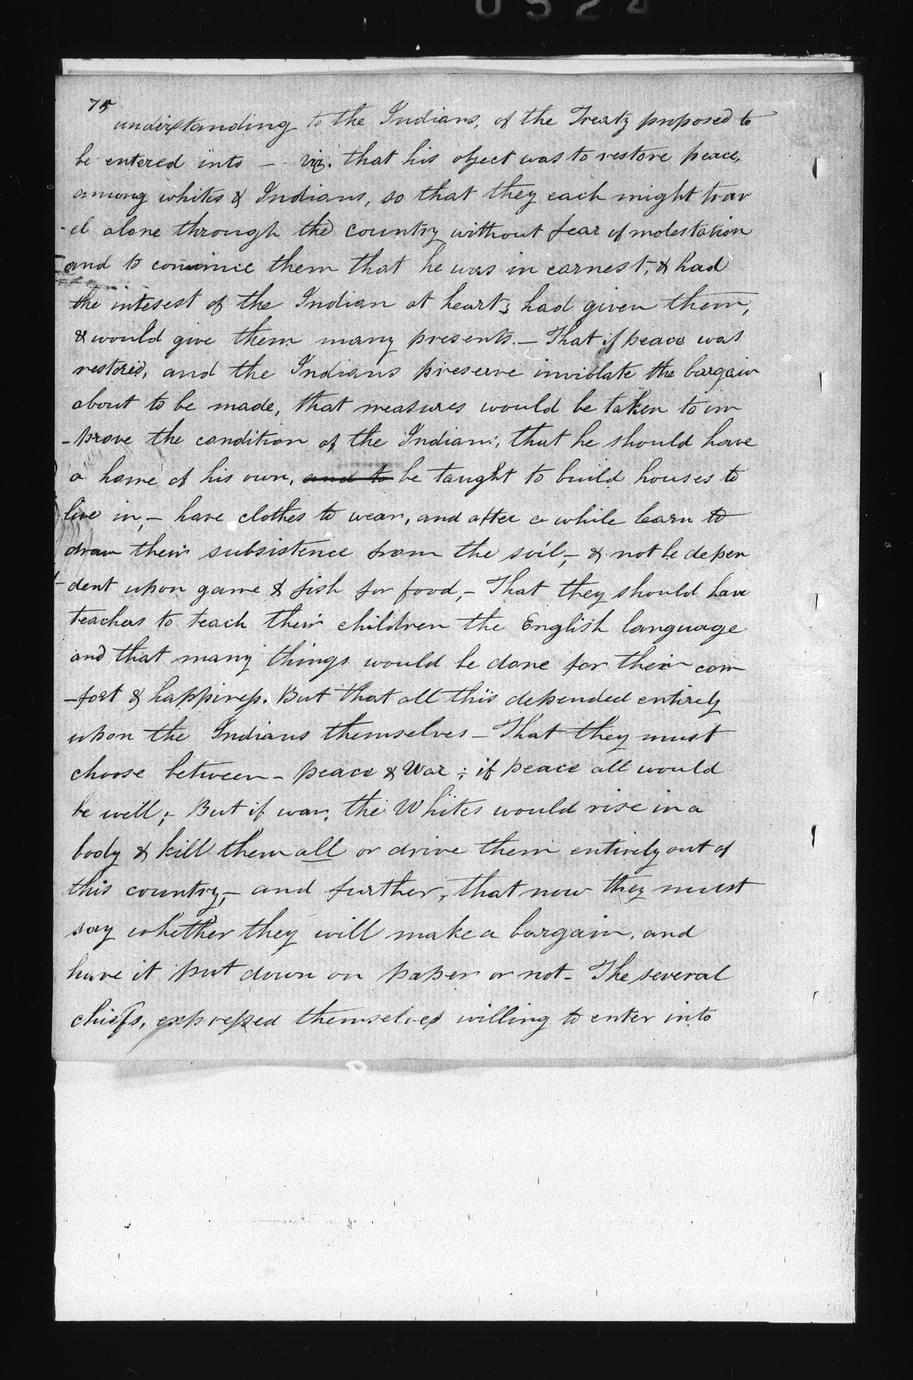 0524
75
understanding to the Indians, of the Treaty proposed to
be entered into - viz. that his object was to restore peace,
among whites & Indians, so that they each might trav
-el alone through the country without fear of molestation
and to convince them that he was in earnest, & had
the interest of the Indian at heart; had given them,
& would give them many presents. - That if peace was
restored, and the Indians preserve inviolate the bargain
about to be made, that measures would be taken to im
-prove the condition of the Indian; that he should have
a home of his own, and to be taught to build houses to
live in, - have clothes to wear, and after a while learn to
draw their subsistence from the soil, - & not be depen
-dent upon game & fish for food, - That they should have
teachers to teach their children the English language
and that many things would be done for their com
-fort & happiness. But that all this depended entirely
upon the Indians themselves - That they must
choose between - peace & War; if peace all would
be well; - But if war, the Whites would rise in a
body & kill them all or drive them entirely out of
this country, - and further, that now they must
say whether they will make a bargain, and
have it put down on paper or not - The several
chiefs, expressed themselves willing to enter into